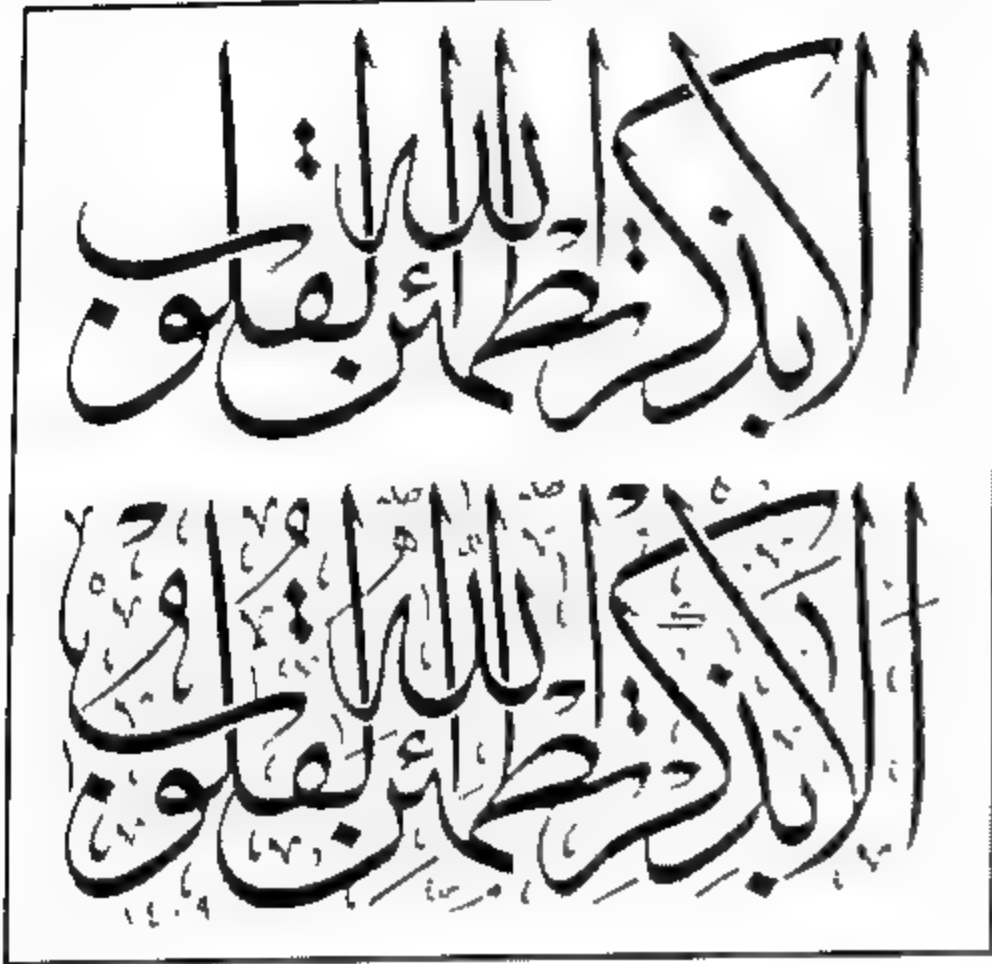 الا بذكر الله تطمئن القلوب
الا بذكر الله تطمئن القلوب
١٤٠٩